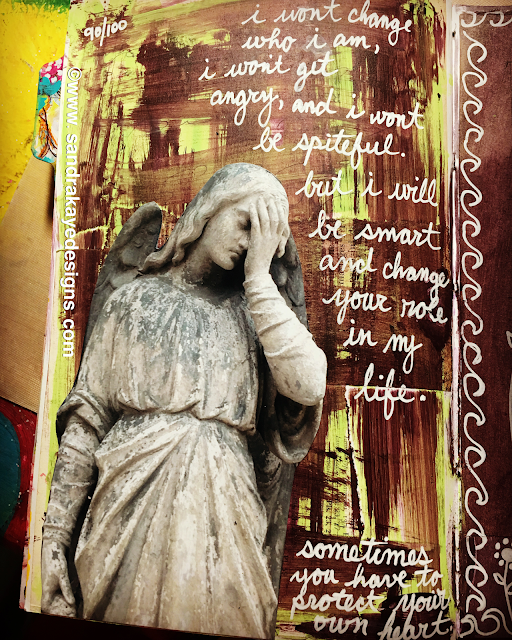 90/100
i wont change
who i am,
i won't get
angry, and i wont
be spiteful.
but i will
be smart
and change
your role
in my
life.
sometimes
you have to
protect your
own heart.
©www.sandrakayedesigns.com